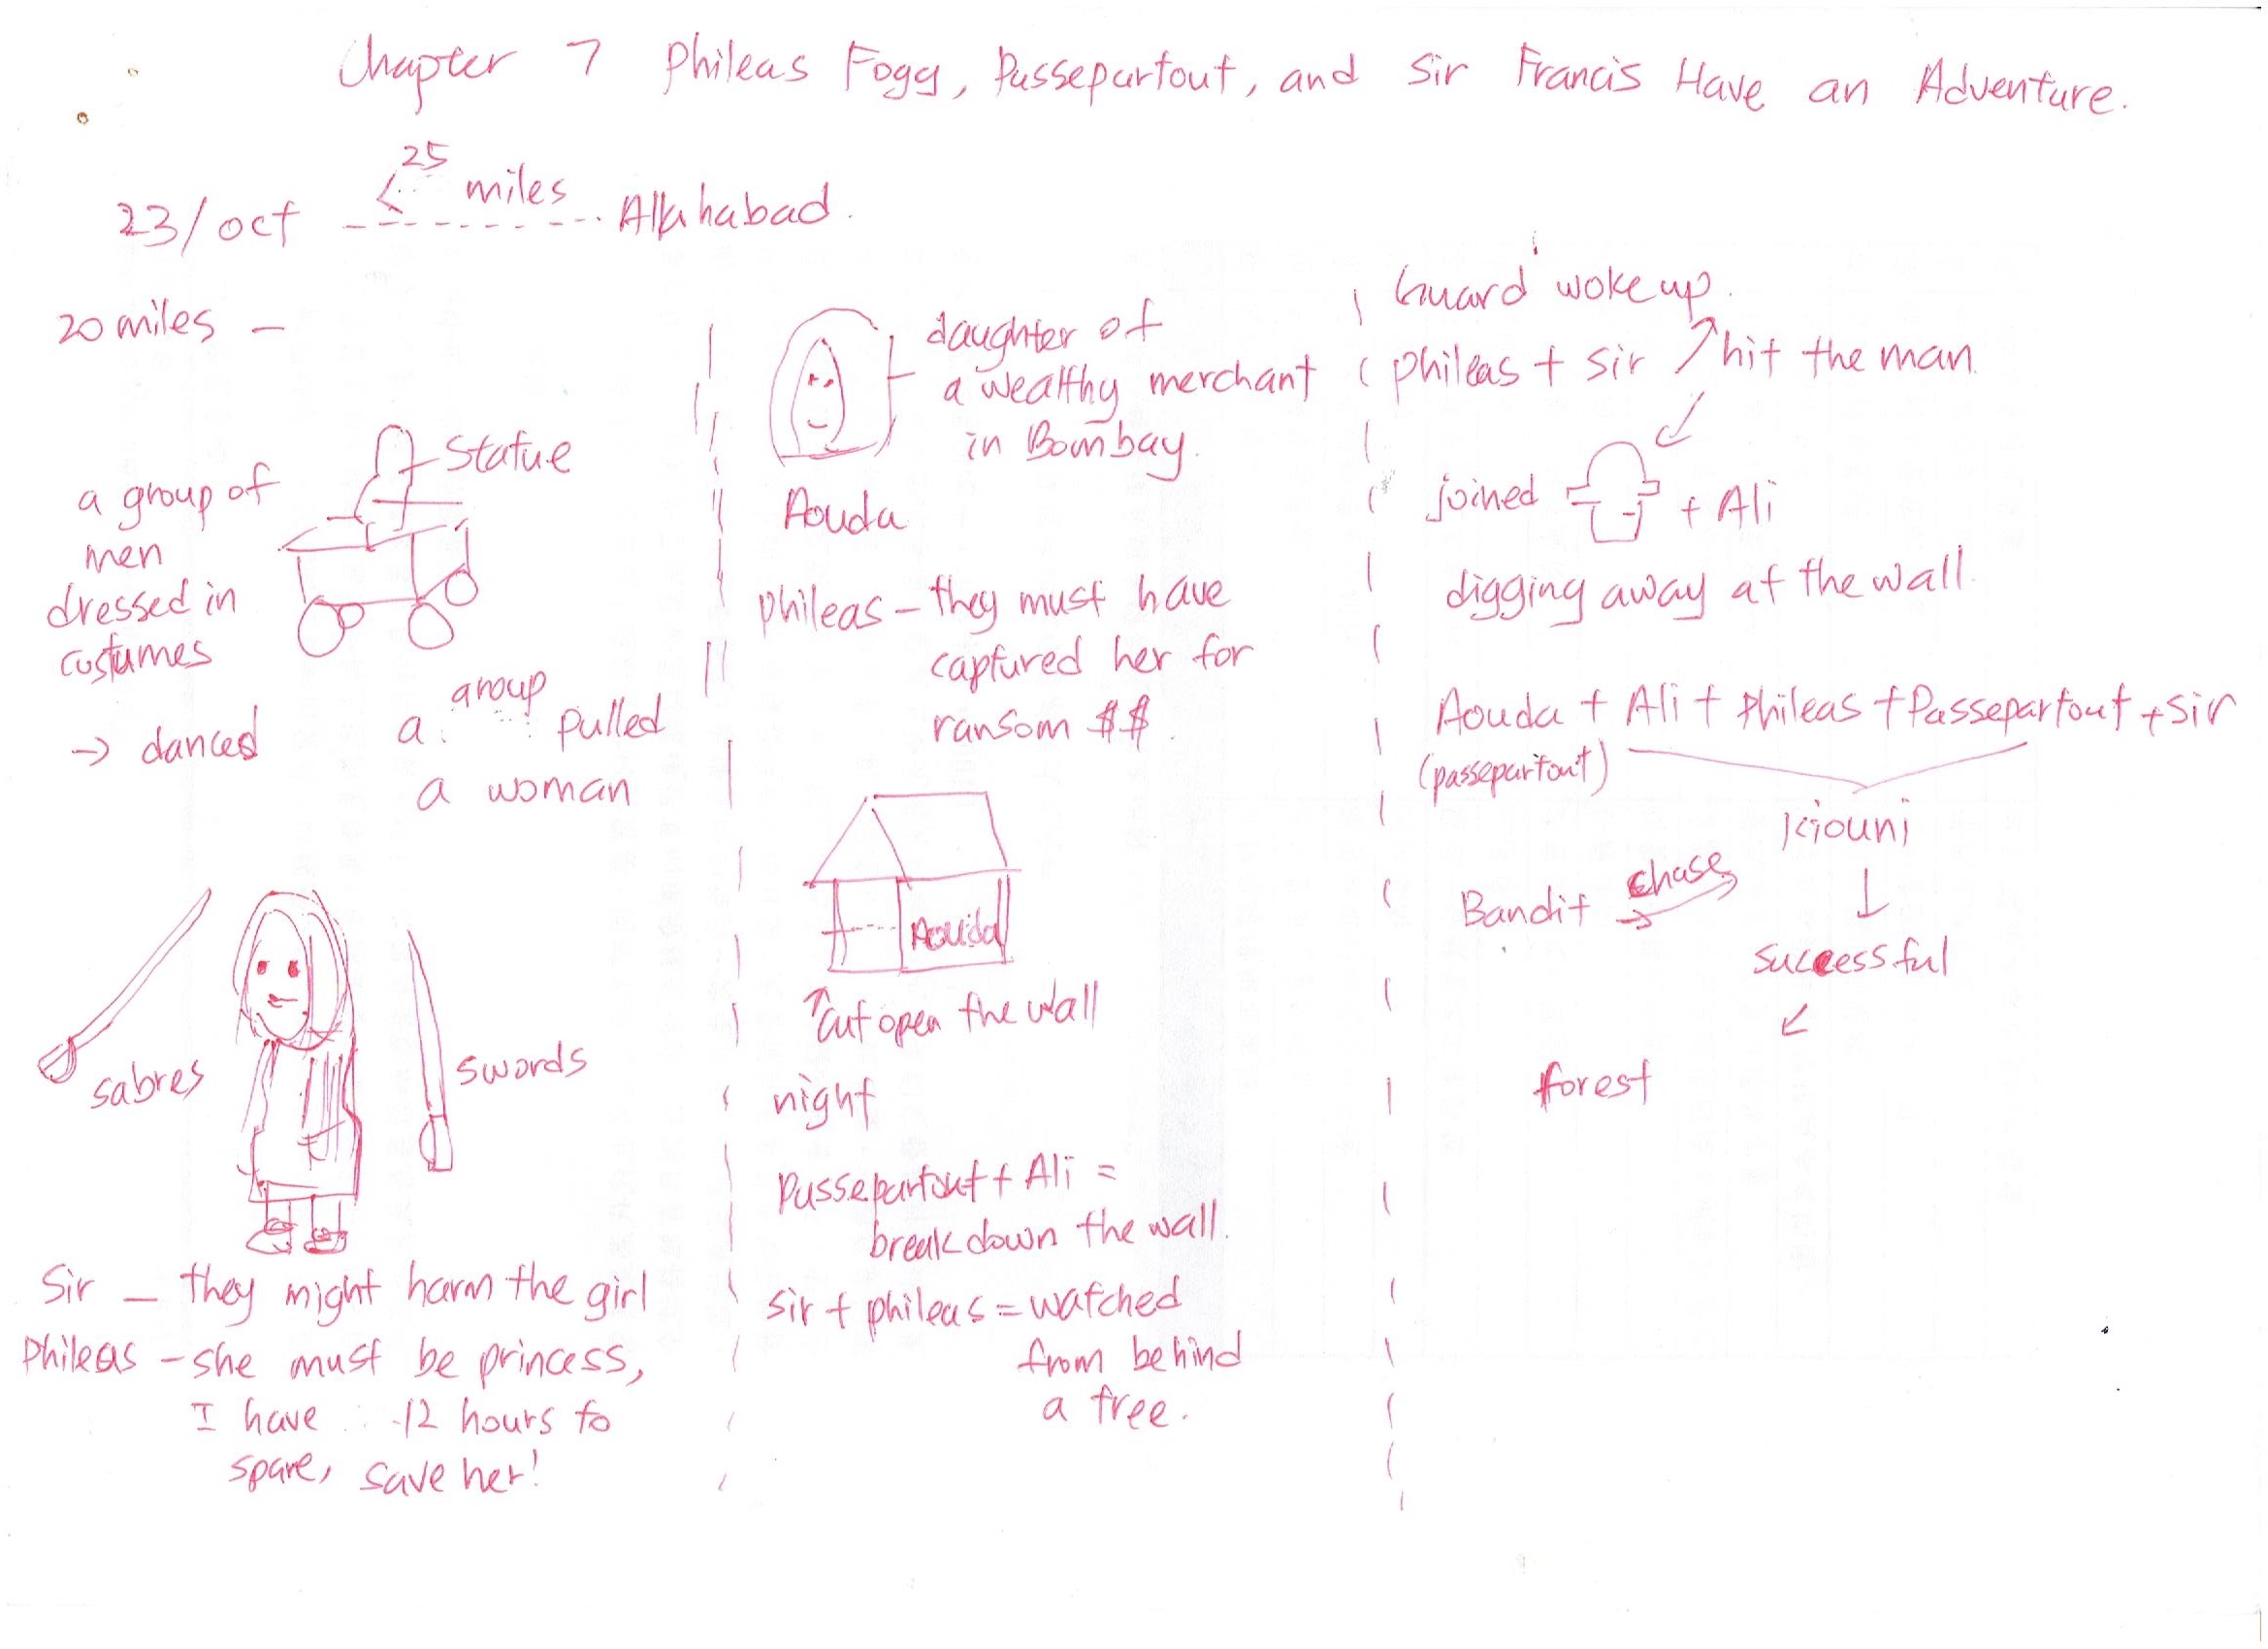 Chapter 7 Phileas Fogg, Passepartout, and Sir Francis Have an Adventure.
23/oct < 25 miles Allahabad.
20 miles —
Statue
a group of
men
dressed in
costumes
→ danced
a group pulled
a woman
sabres
swords
Sir — they might harm the girl
Phileas — she must be princess,
I have 12 hours to
spare, save her!
daughter of
a wealthy merchant
in Bombay.
Aouda
Phileas — they must have
captured her for
ransom $$.
Aouda
↑ cut open the wall
night
Passepartout + Ali =
break down the wall.
Sir + phileas = watched
from behind
a tree.
Guard woke up.
phileas + sir ↗ hit the man.
joined + Ali
digging away at the wall.
Aouda + Ali + Phileas + Passepartout + Sir
(passepartout)
Kiouni
Bandit → chase
↓
successful
↙
forest